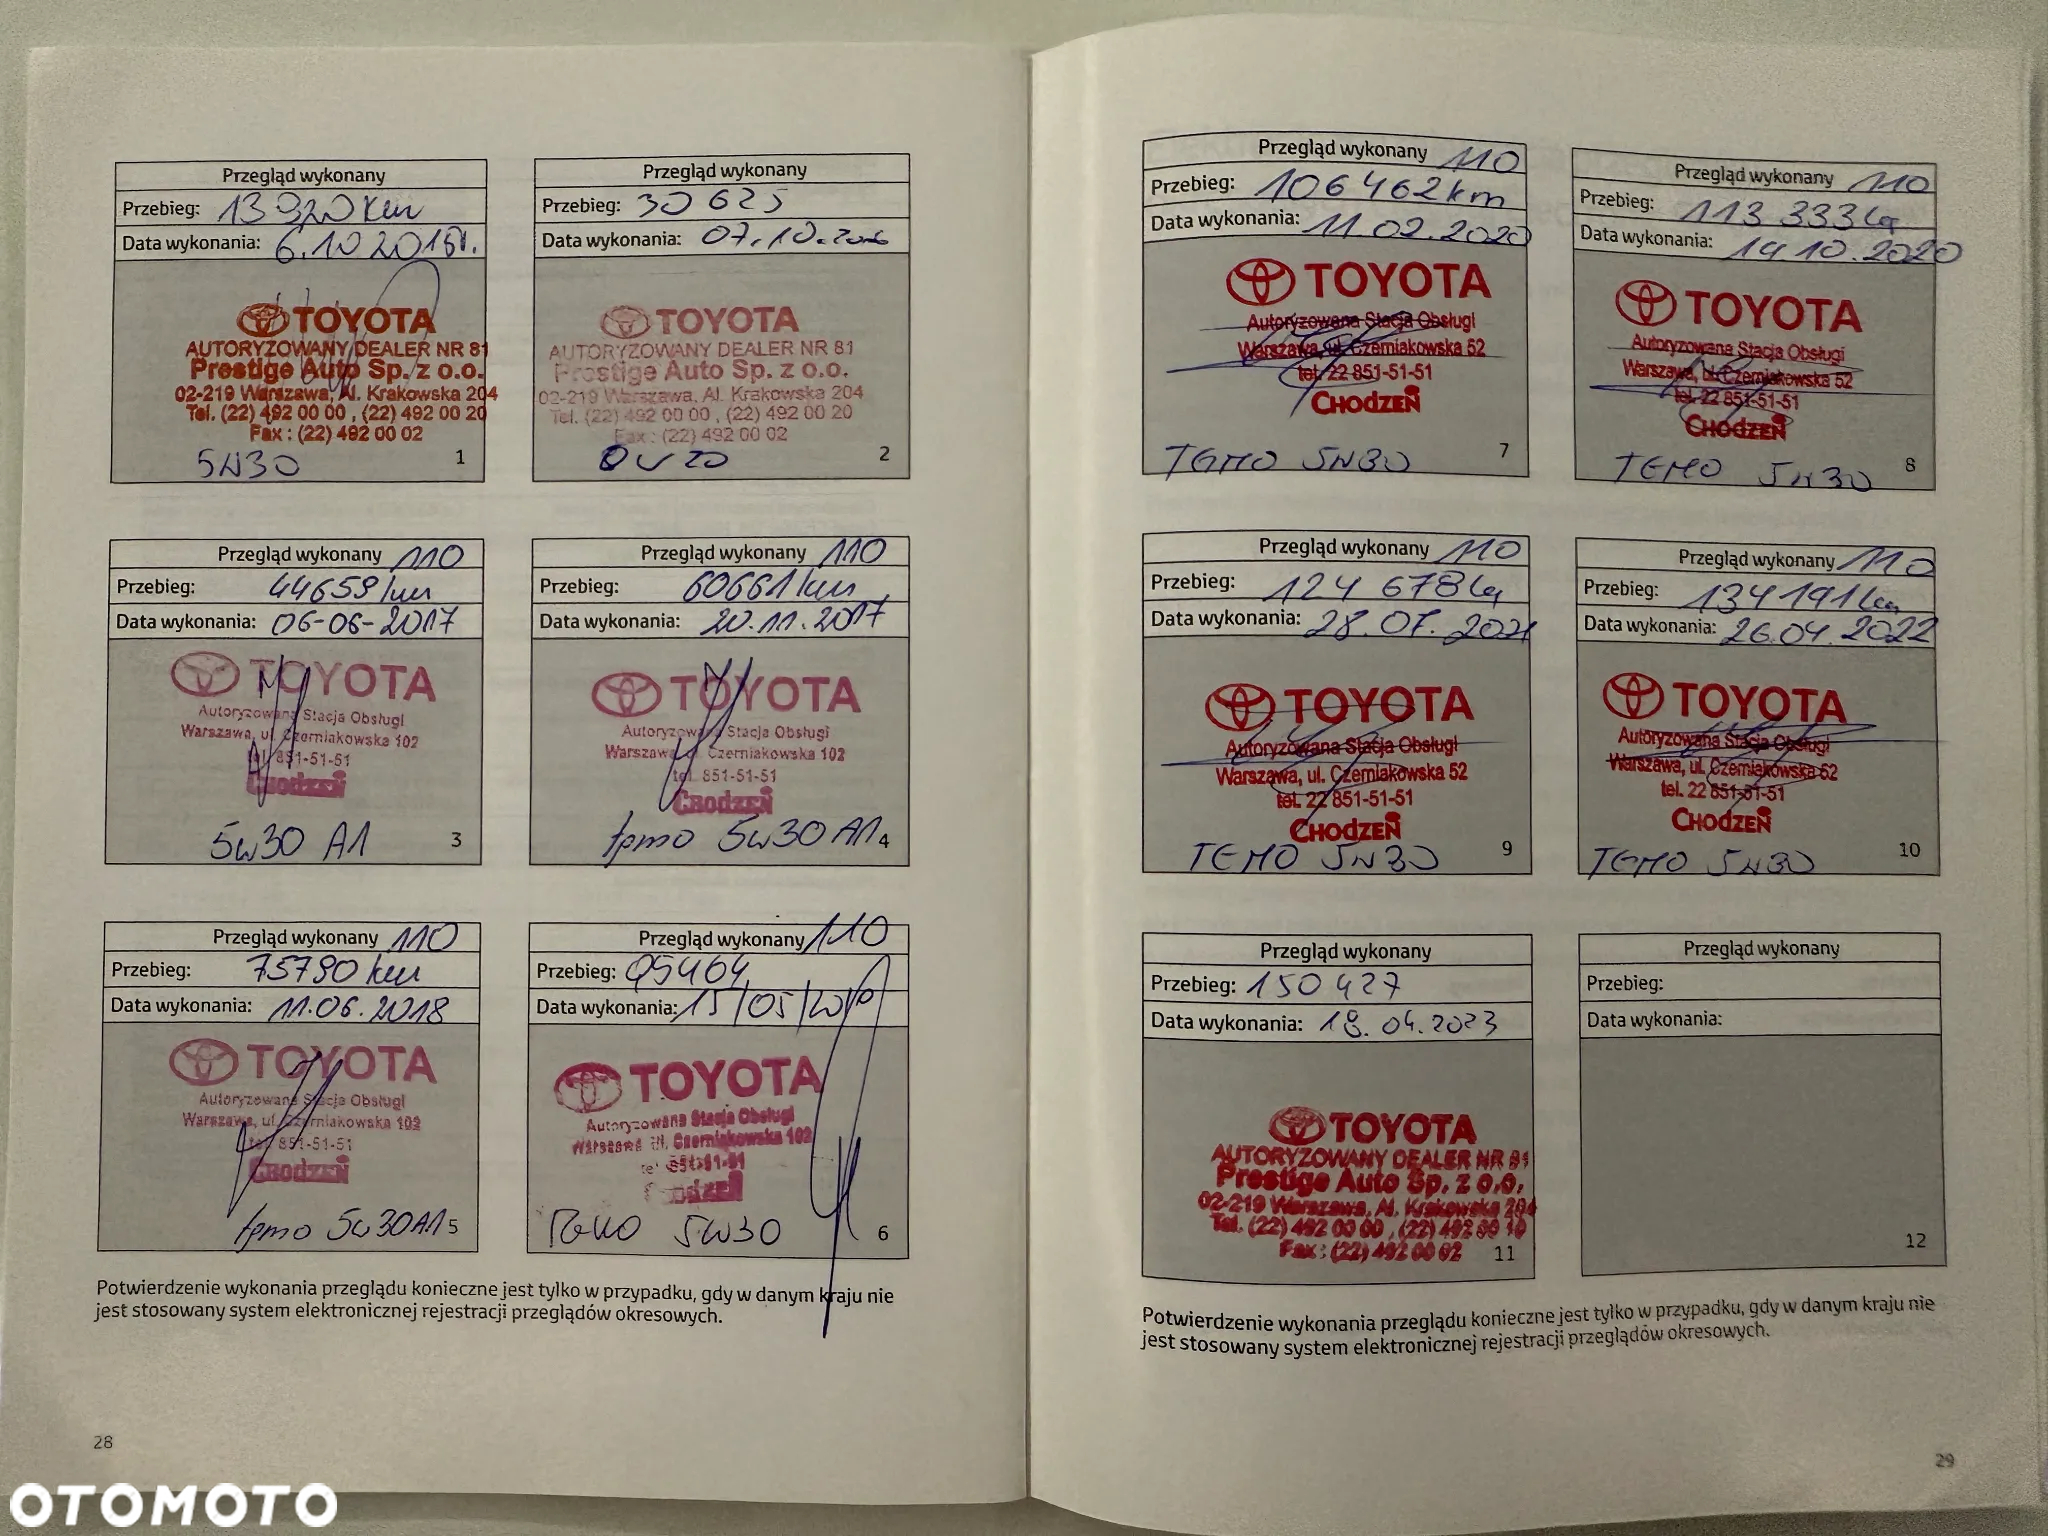 Przegląd wykonany
Przebieg: 13920 km
Data wykonania: 6.10.2015r.
TOYOTA
AUTORYZOWANY DEALER NR 81
Prestige Auto Sp. z o.o.
02-219 Warszawa, Al. Krakowska 204
Tel. (22) 492 00 00 , (22) 492 00 20
Fax : (22) 492 00 02
5W30
1
Przegląd wykonany
Przebieg: 30 625
Data wykonania: 07.10.2016
TOYOTA
AUTORYZOWANY DEALER NR 81
Prestige Auto Sp. z o.o.
02-219 Warszawa, Al. Krakowska 204
Tel. (22) 492 00 00 , (22) 492 00 20
Fax : (22) 492 00 02
0W20
2
Przegląd wykonany 110
Przebieg: 44659 km
Data wykonania: 06-06-2017
TOYOTA
Autoryzowana Stacja Obsługi
Warszawa, ul. Czerniakowska 102
tel. 851-51-51
Chodzeń
5W30 A1
3
Przegląd wykonany 110
Przebieg: 60661 km
Data wykonania: 20.11.2017
TOYOTA
Autoryzowana Stacja Obsługi
Warszawa, ul. Czerniakowska 102
tel. 851-51-51
Chodzeń
tgmo 5W30 A1
4
Przegląd wykonany 110
Przebieg: 75790 km
Data wykonania: 11.06.2018
TOYOTA
Autoryzowana Stacja Obsługi
Warszawa, ul. Czerniakowska 102
tel. 851-51-51
Chodzeń
tgmo 5W30 A1
5
Przegląd wykonany 110
Przebieg: 95464
Data wykonania: 15/05/2019
TOYOTA
Autoryzowana Stacja Obsługi
Warszawa ul. Czerniakowska 102
tel 851-51-51
Chodzeń
TGMO 5W30
6
Potwierdzenie wykonania przeglądu konieczne jest tylko w przypadku, gdy w danym kraju nie
jest stosowany system elektronicznej rejestracji przeglądów okresowych.
28
Przegląd wykonany 110
Przebieg: 106 462 km
Data wykonania: 11.02.2020
TOYOTA
Autoryzowana Stacja Obsługi
Warszawa, ul. Czerniakowska 52
tel. 22 851-51-51
CHODZEŃ
TGMO 5W30
7
Przegląd wykonany 110
Przebieg: 113 333 km
Data wykonania: 14.10.2020
TOYOTA
Autoryzowana Stacja Obsługi
Warszawa, ul. Czerniakowska 52
tel. 22 851-51-51
CHODZEŃ
TGMO 5W30
8
Przegląd wykonany 110
Przebieg: 124 678 km
Data wykonania: 28.07.2021
TOYOTA
Autoryzowana Stacja Obsługi
Warszawa, ul. Czerniakowska 52
tel. 22 851-51-51
CHODZEŃ
TGMO 5W30
9
Przegląd wykonany 110
Przebieg: 134 191 km
Data wykonania: 26.04.2022
TOYOTA
Autoryzowana Stacja Obsługi
Warszawa, ul. Czerniakowska 52
tel. 22 851-51-51
CHODZEŃ
TGMO 5W30
10
Przegląd wykonany
Przebieg: 150 427
Data wykonania: 18.04.2023
TOYOTA
AUTORYZOWANY DEALER NR 81
Prestige Auto Sp. z o.o.
02-219 Warszawa, Al. Krakowska 204
Tel. (22) 492 00 00 , (22) 492 00 10
Fax : (22) 492 00 02
11
Przegląd wykonany
Przebieg:
Data wykonania:
12
Potwierdzenie wykonania przeglądu konieczne jest tylko w przypadku, gdy w danym kraju nie
jest stosowany system elektronicznej rejestracji przeglądów okresowych.
29
OTOMOTO